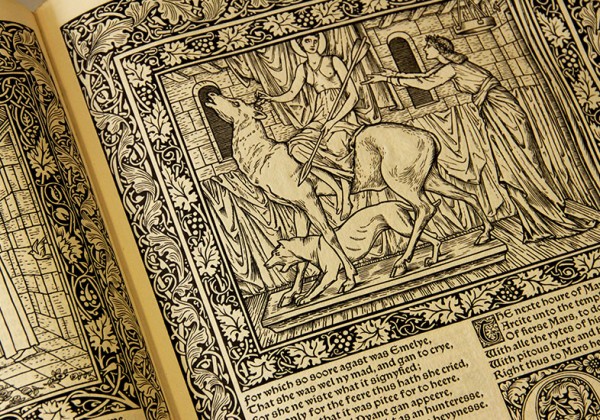 For which so soore agast was Emelye,
That she was wel ny mad, and gan to crye,
For she ne wiste what it signyfied;
only for the feere thus hath she cried,
that it was pitee for to heere.
yane gan appeere,
as an hunteresse,
esse.
The nexte houre of Ma
Arcite unto the temp
Of fierse Mars, to d
With alle the rytes of his
With pitous herte and
Right thus to Mar